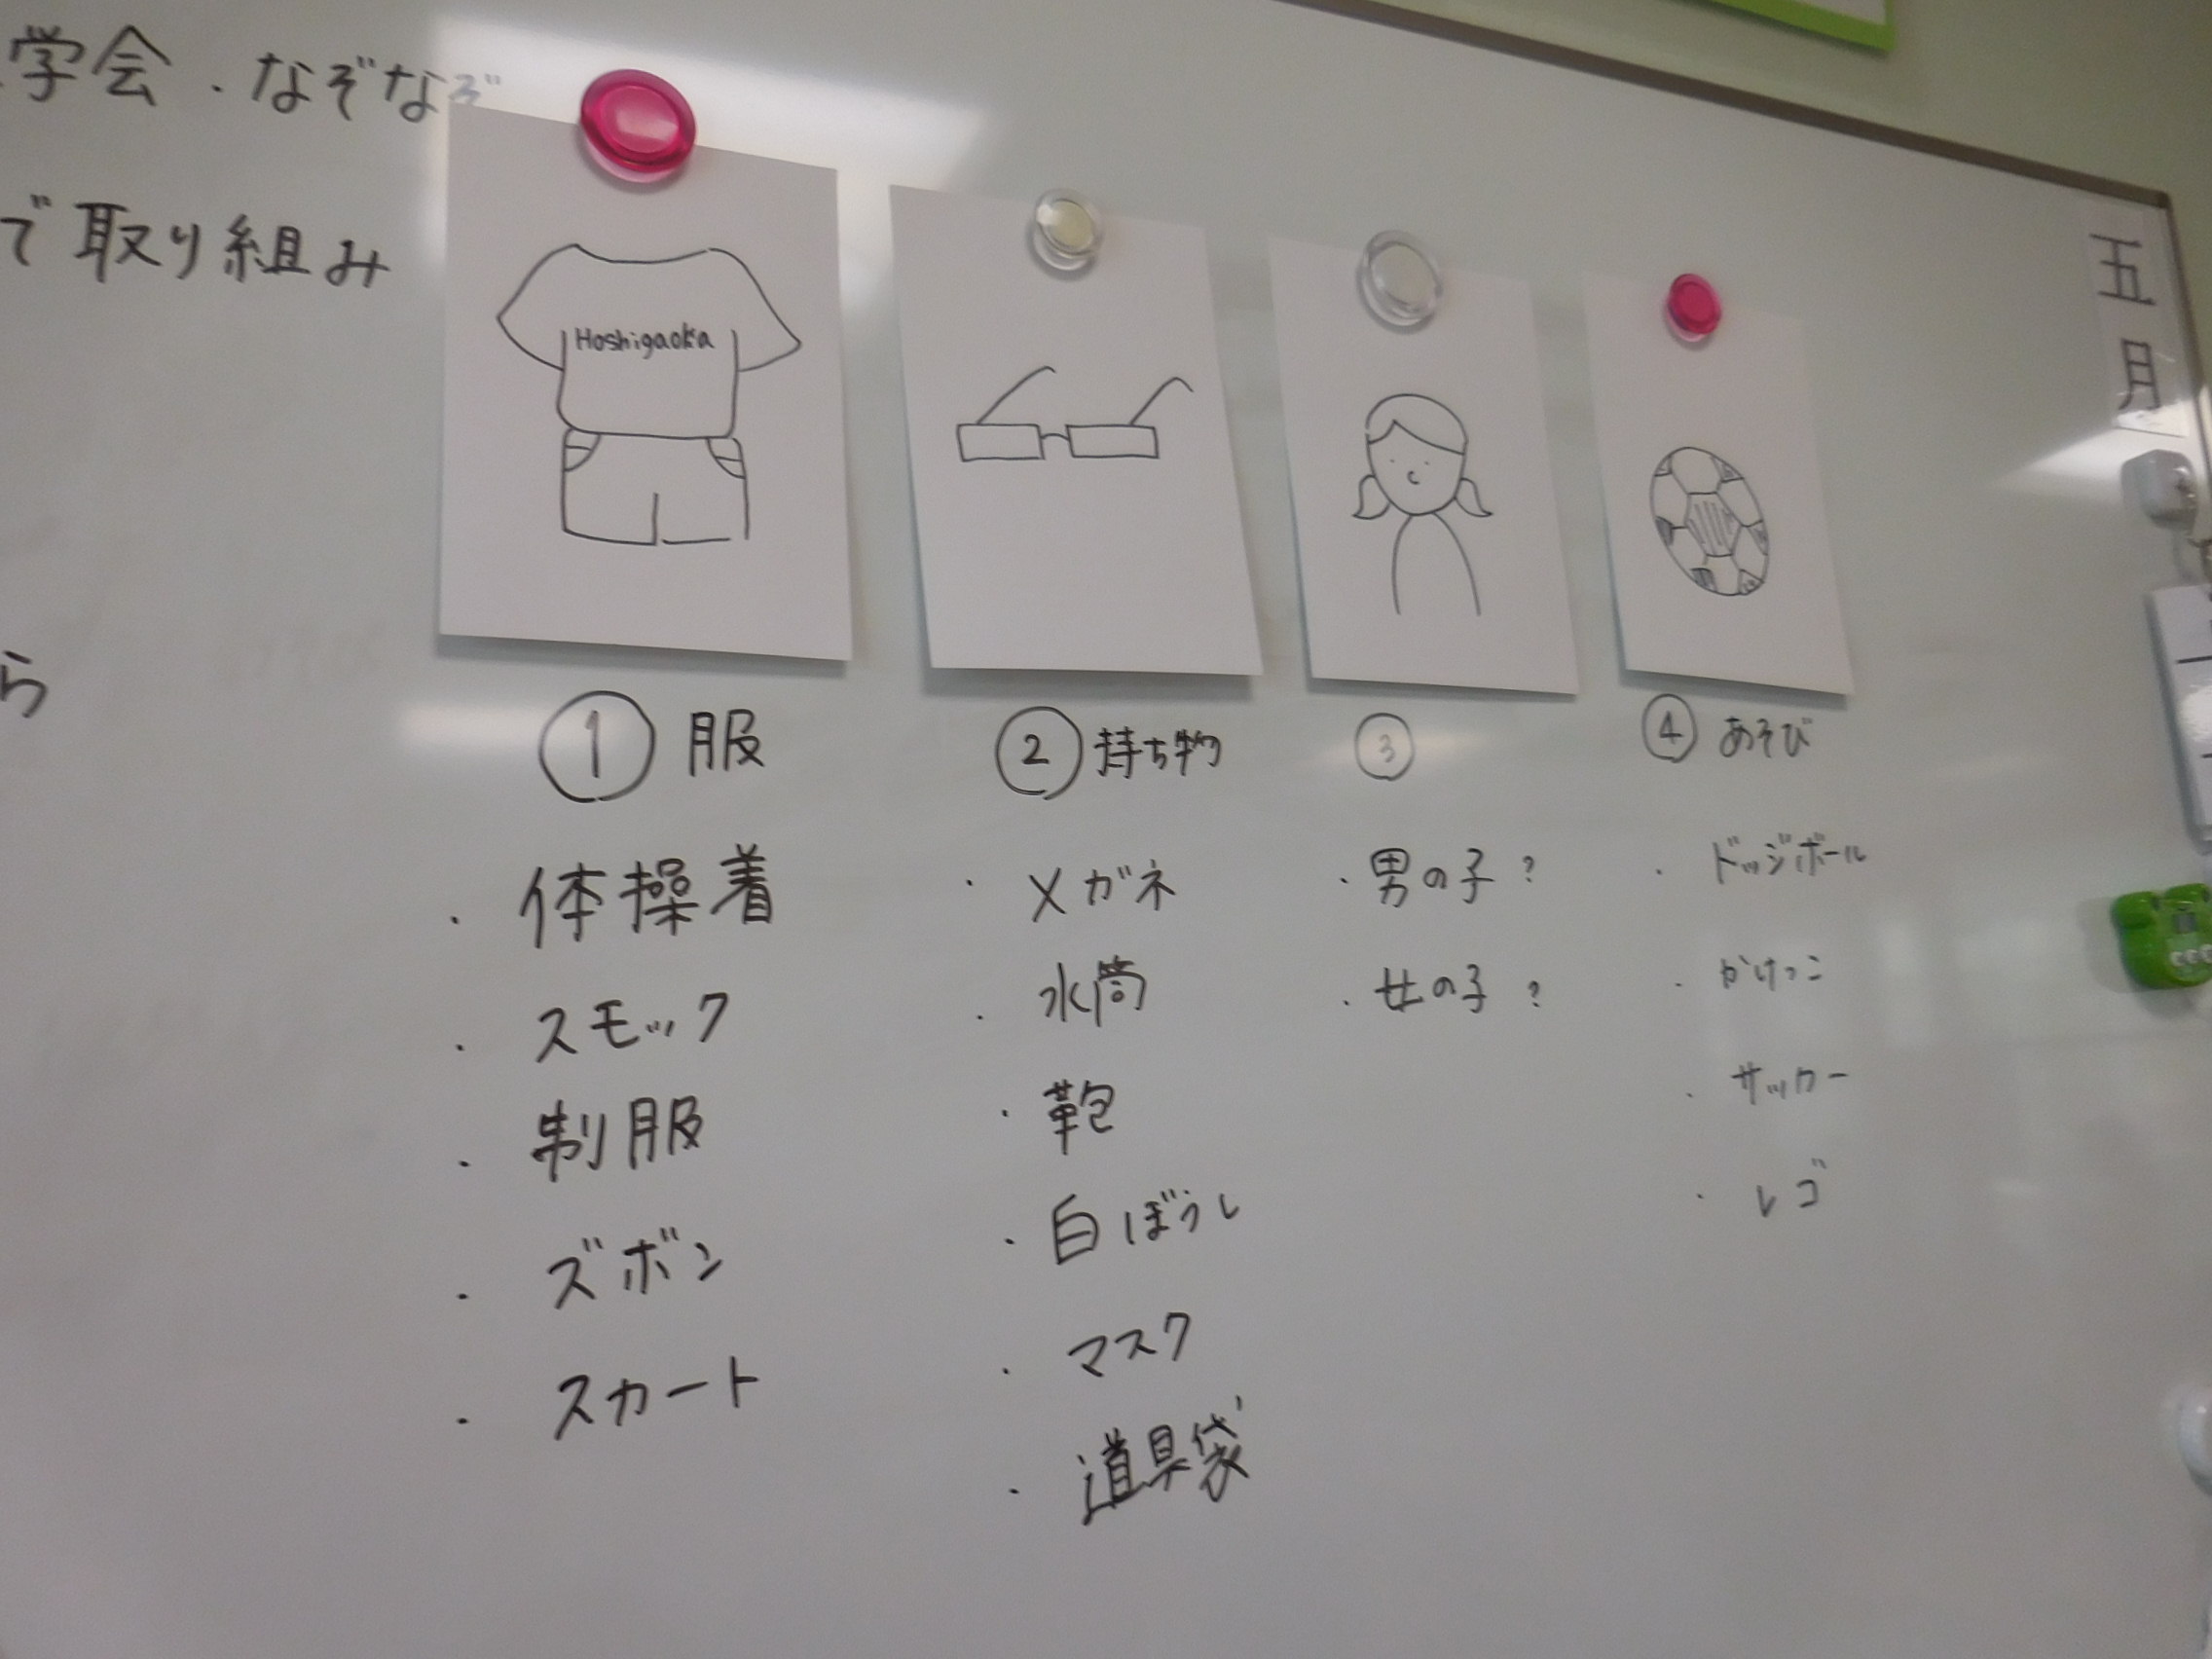 学会・なぞなぞ
で取り組み
ら
五月
Hoshigaoka
① 服
・体操着
・スモック
・制服
・ズボン
・スカート
② 持ち物
・メガネ
・水筒
・鞄
・白ぼうし
・マスク
・道具袋
③
・男の子?
・女の子?
④ あそび
・ドッジボール
・かけっこ
・サッカー
・レゴ